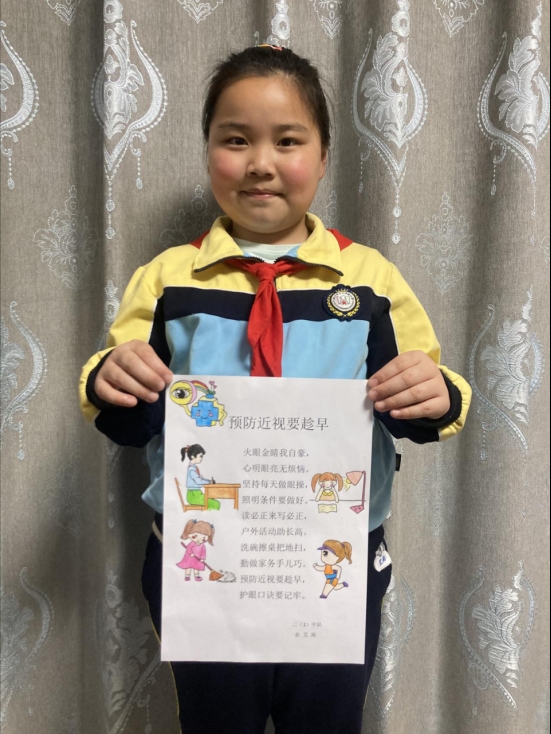 预防近视要趁早
火眼金睛我自豪，
心明眼亮无烦恼。
坚持每天做眼操，
照明条件要做好。
读必正来写必正，
户外活动助长高。
洗碗擦桌把地扫，
勤做家务手儿巧。
预防近视要趁早，
护眼口诀要记牢。